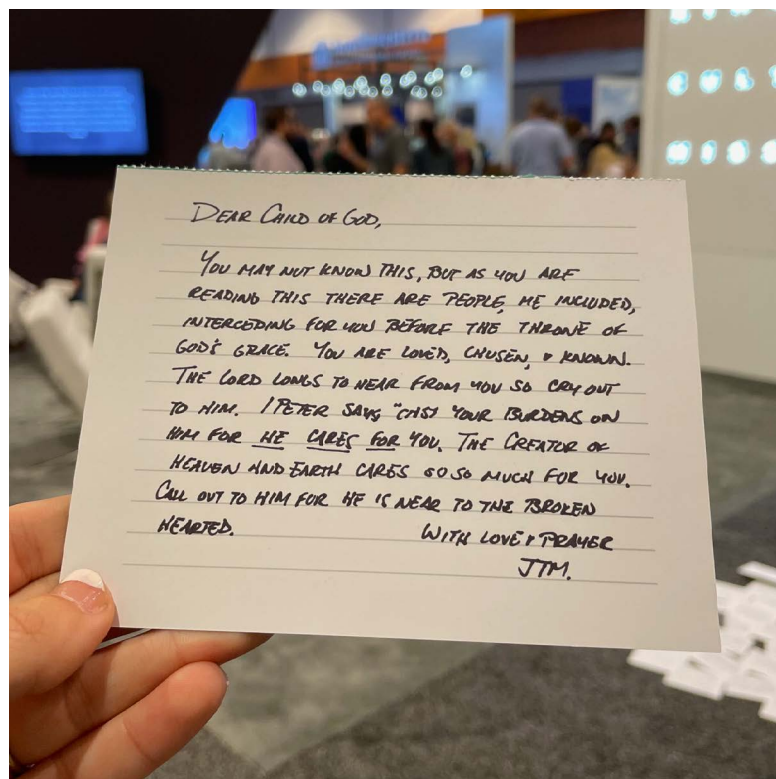 DEAR CHILD OF GOD,
YOU MAY NOT KNOW THIS, BUT AS YOU ARE
READING THIS THERE ARE PEOPLE, ME INCLUDED,
INTERCEDING FOR YOU BEFORE THE THRONE OF
GOD'S GRACE. YOU ARE LOVED, CHOSEN, & KNOWN.
THE LORD LONGS TO HEAR FROM YOU SO CRY OUT
TO HIM. 1 PETER SAYS "CAST YOUR BURDENS ON
HIM FOR HE CARES FOR YOU. THE CREATOR OF
HEAVEN AND EARTH CARES SO SO MUCH FOR YOU.
CALL OUT TO HIM FOR HE IS NEAR TO THE BROKEN
HEARTED.
WITH LOVE & PRAYER
JTM.